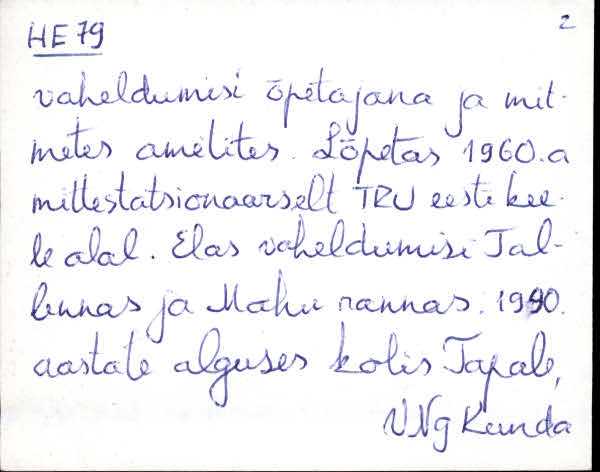 HE 79
2
vaheldumisi õpetajana ja mit-
metes ametites. Lõpetas 1960. a
mittestatsionaarselt TRU eesti kee-
le alal. Elas vaheldumisi Tal-
linnas ja Mahu rannas. 1990.
aastate alguses kolis Tapale,
VNg Kunda